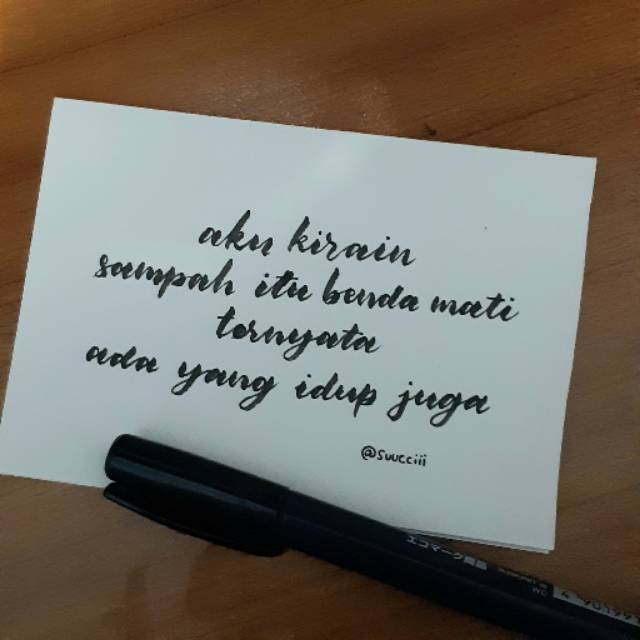 aku kirain
sampah itu benda mati
ternyata
ada yang idup juga
@Suucciii
エコマーク